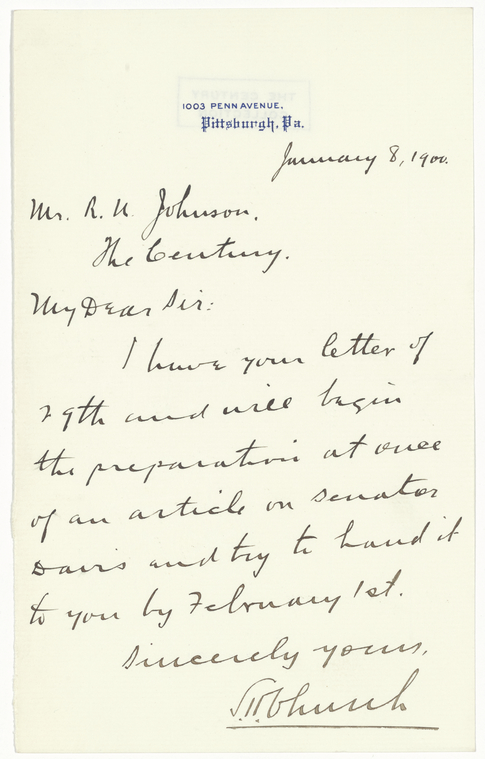 1003 PENN AVENUE.
Pittsburgh, Pa.
January 8, 1900.
Mr. R. U. Johnson,
The Century.
My Dear Sir:
I have your letter of
29th and will begin
the preparation at once
of an article on Senator
Davis and try to hand it
to you by February 1st.
Sincerely yours,
S.H. Church